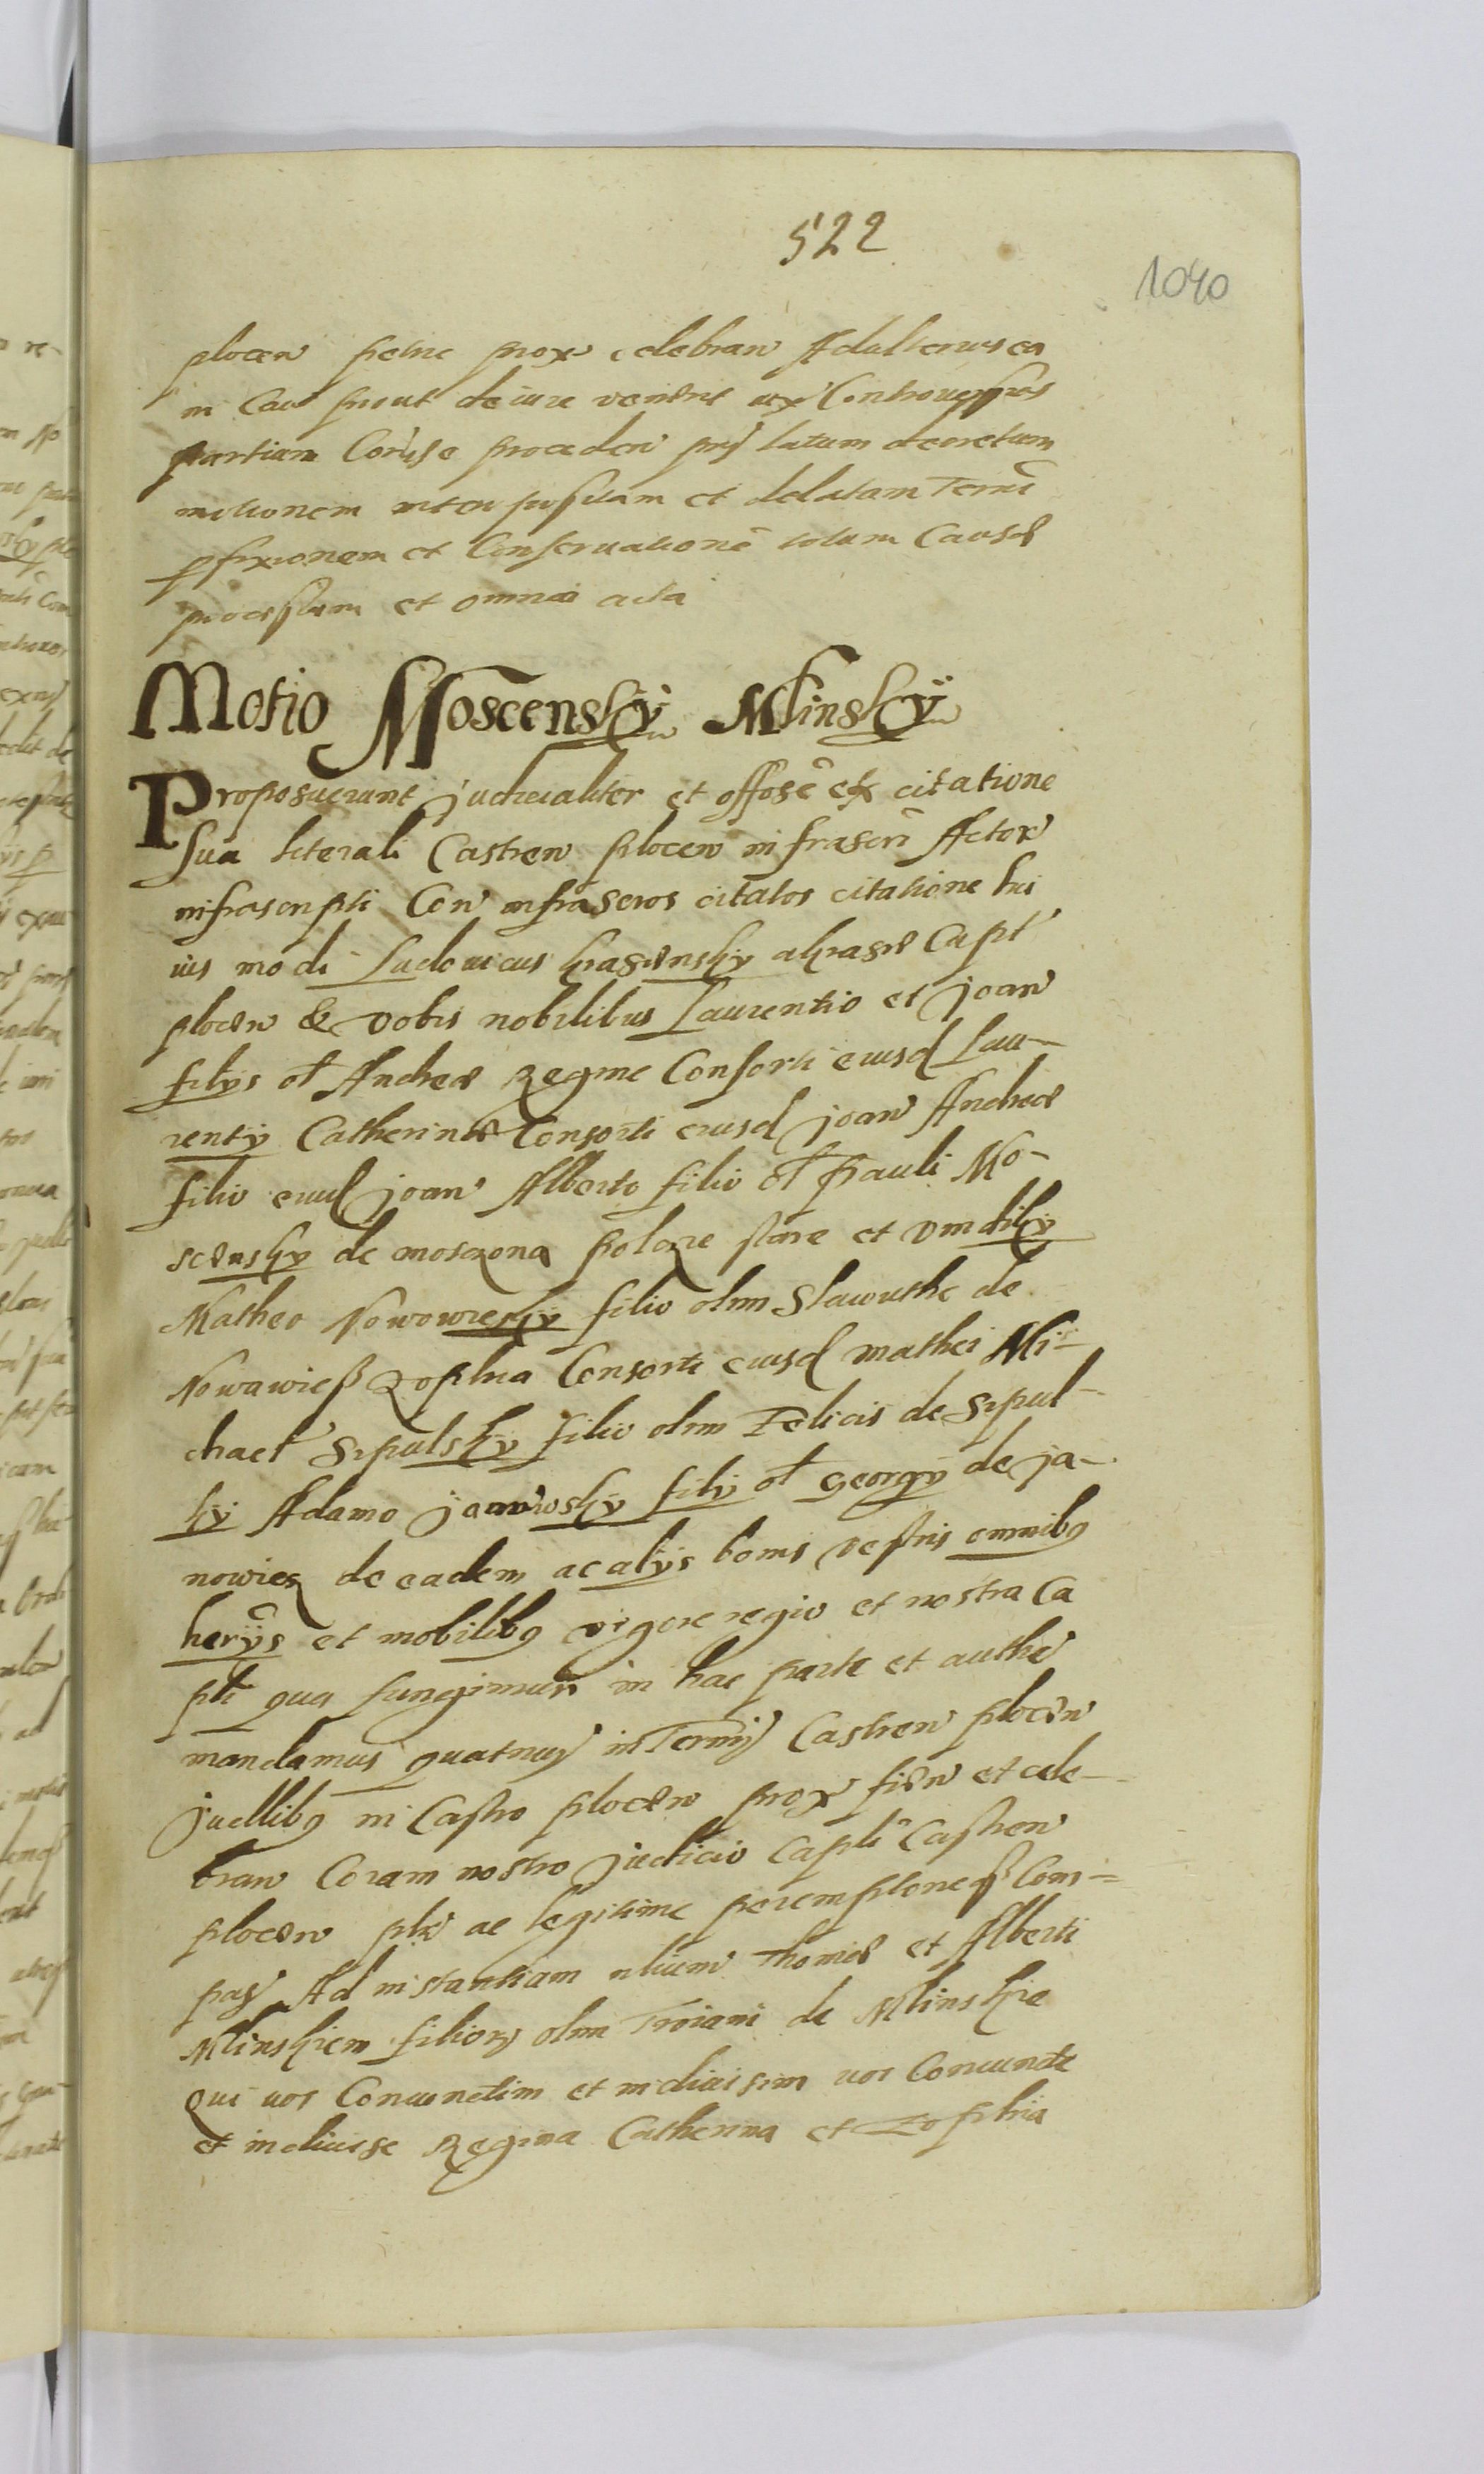 522
1040
plocen petne prox celebran Ad ulterius ea
in Cau prout de iure venerit iux Controuersias
partium Coruse proceden latum decretum
motionem interpositam et delatam Termi
pfixionem et Conseruatione totum Causæ
processum et omnia acta
Motio Moscensky Mlinsky
Proposuerunt judicialiter et offose ex citatione
sua literali Castren plocen infrascri Actor
infrascripti Con infrascros citatos citatione hui
ius modi Ludouicus krasensky akrasne Capt
plocen & vobis nobilibus Laurentio et joan
filys ol Andreæ Regine Consorti eiusd Lau-
renty Catherinæ Consorti eiusd joan Andreæ
filio eiusd joan Alberto filio ol Pauli Mo-
scensky de mosczona poloze stare et
Matheo Nowowiesky filio olim Slawuthe de
Nowawieß Zophia Consorti eiusd mathei Mi-
chael Srpulsky filio olim Felicis de Srpul-
ky Adamo janowsky fily ol georgy de ja-
nowiez de eadem ac alys bonis vestris omnibus
herys et mobilibus vigore regio et nostra Ca
pli qua fungimur in hac parte et authe
mandamus quatnus in Termis Castren plocen
juellibus in Castro plocen prox fien et cele-
bran Coram nostro judicio Capli Castren
plocen plr ac legitime peremptorie Com-
pas Ad instantiam nlium Thomæ et Alberti
Mlinskiem filiorum olim Troiani de Mlinskie
Qui vos Coniunctim et indiuisim vos Coniuncte
et indiuise Regina Catherina et Zophia